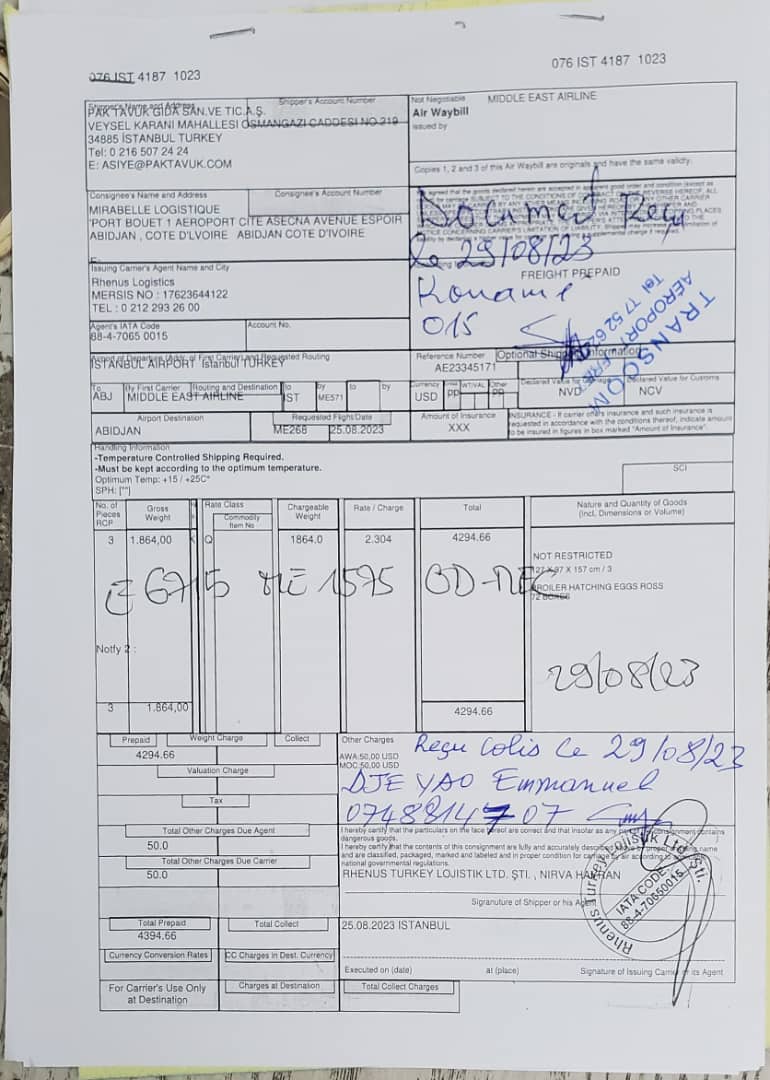 076 IST 4187 1023
076 IST 4187 1023
Shipper's Name and Address
Shipper's Account Number
PAK TAVUK GIDA SAN.VE TIC.A.Ş.
VEYSEL KARANI MAHALLESI OSMANGAZI CADDESI NO 219
34885 ISTANBUL TURKEY
Tel: 0 216 507 24 24
E: ASIYE@PAKTAVUK.COM
Not Negotiable
MIDDLE EAST AIRLINE
Air Waybill
issued by
Copies 1, 2 and 3 of this Air Waybill are originals and have the same validity.
Consignee's Name and Address
Consignee's Account Number
MIRABELLE LOGISTIQUE
'PORT BOUET 1 AEROPORT CITE ASECNA AVENUE ESPOIR
ABIDJAN , COTE D'LVOIRE ABIDJAN COTE D'IVOIRE
Document Reçu
le 29/08/23
Kouamé
015
FREIGHT PREPAID
TRANSCOM
AEROPORT
Tel
Issuing Carrier's Agent Name and City
Rhenus Logistics
MERSIS NO : 17623644122
TEL : 0 212 293 26 00
Agent's IATA Code
Account No.
88-4-7065 0015
Airport of Departure (Addr. of First Carrier) and Requested Routing
ISTANBUL AIRPORT Istanbul TURKEY
Reference Number
Optional Shipping Information
AE23345171
To
By First Carrier
Routing and Destination
to
by
to
by
ABJ
MIDDLE EAST AIRLINE
IST
ME571
Currency
WT/VAL
Other
USD
PP
PP
Declared Value for Carriage
Declared Value for Customs
NVD
NCV
Airport Destination
Requested Flight/Date
ABIDJAN
ME268
25.08.2023
Amount of Insurance
XXX
INSURANCE - If carrier offers insurance and such insurance is
requested in accordance with the conditions thereof, indicate amount
to be insured in figures in box marked "Amount of Insurance".
Handling Information
-Temperature Controlled Shipping Required.
-Must be kept according to the optimum temperature.
Optimum Temp: +15 / +25C*
SPH: [""]
SCI
No. of Pieces RCP
Gross Weight
Rate Class
Commodity Item No
Chargeable Weight
Rate / Charge
Total
Nature and Quantity of Goods
(incl, Dimensions or Volume)
3
1.864,00
K
Q
1864.0
2.304
4294.66
NOT RESTRICTED
127 X 97 X 157 cm / 3
BROILER HATCHING EGGS ROSS
72 BOXES
E 6715 ME 1575
Notfy 2 :
29/08/23
3
1.864,00
4294.66
Prepaid
Weight Charge
Collect
4294.66
Valuation Charge
Tax
Other Charges
AWA:50,00 USD
MOC:50,00 USD
Reçu Colis le 29/08/23
DJE YAO Emmanuel
0748814707
Total Other Charges Due Agent
50.0
Total Other Charges Due Carrier
50.0
I hereby certify that the particulars on the face hereof are correct and that insofar as any part of the consignment contains
dangerous goods.
I hereby certify that the contents of this consignment are fully and accurately described above by proper shipping name
and are classified, packaged, marked and labeled and in proper condition for carriage by air according to applicable
national governmental regulations.
RHENUS TURKEY LOJISTIK LTD. ŞTI. , NIRVA HAKRAN
Signature of Shipper or his Agent
Rhenus Turkey Lojistik Ltd. Şti.
IATA CODE:
88-4-70650015
Total Prepaid
Total Collect
4394.66
25.08.2023 ISTANBUL
Currency Conversion Rates
CC Charges in Dest. Currency
Executed on (date)
at (place)
Signature of Issuing Carrier or its Agent
For Carrier's Use Only
at Destination
Charges at Destination
Total Collect Charges